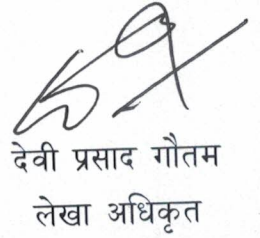 देवी प्रसाद गौतम
लेखा अधिकृत